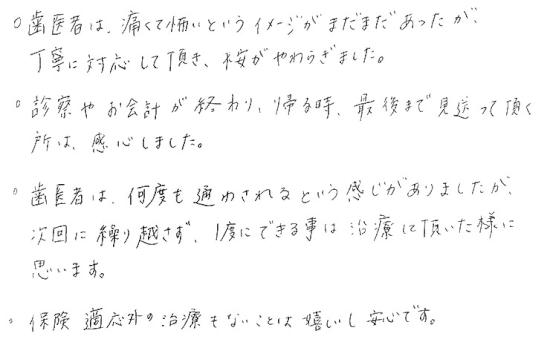 ○歯医者は、痛くて怖いというイメージがまだまだあったが、
丁寧に対応して頂き、不安がやわらぎました。
○診察やお会計が終わり、帰る時、最後まで見送って頂く
所は、感心しました。
○歯医者は、何度も通わされるという感じがありましたが、
次回に繰り越さず、1度にできる事は治療して頂いた様に
思います。
○保険適応外の治療もないことは嬉しいし安心です。